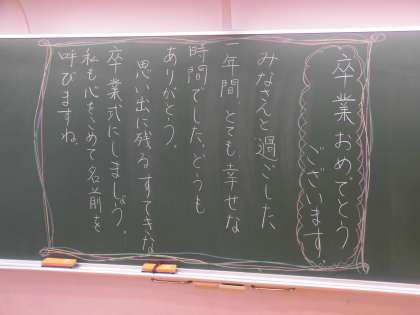 卒業おめでとう
ございます。
みなさんと過ごした
一年間、とても幸せな
時間でした。どうも
ありがとう。
思い出に残るすてきな
卒業式にしましょう。
私も心をこめて名前を
呼びますね。